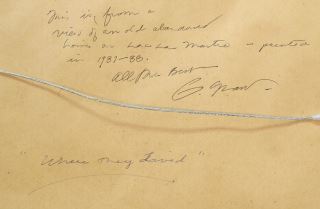 This is from a
view of an old abandoned
house on Lac La Martre - painted
in 1987-88.
All the Best
"Where they Lived"